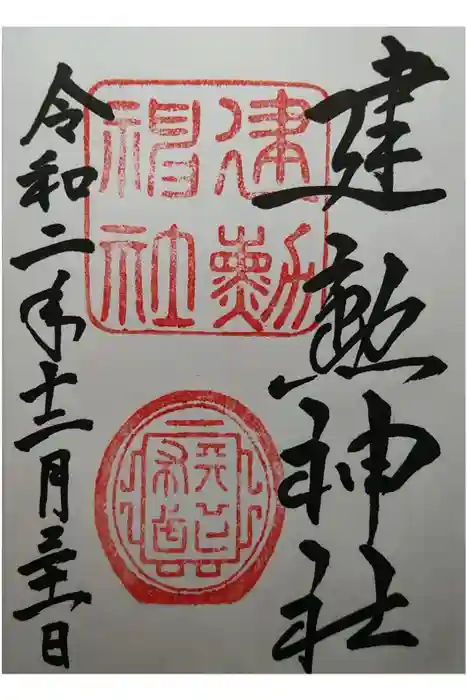 建勲神社
建勲
神社
令和二年十二月三十一日